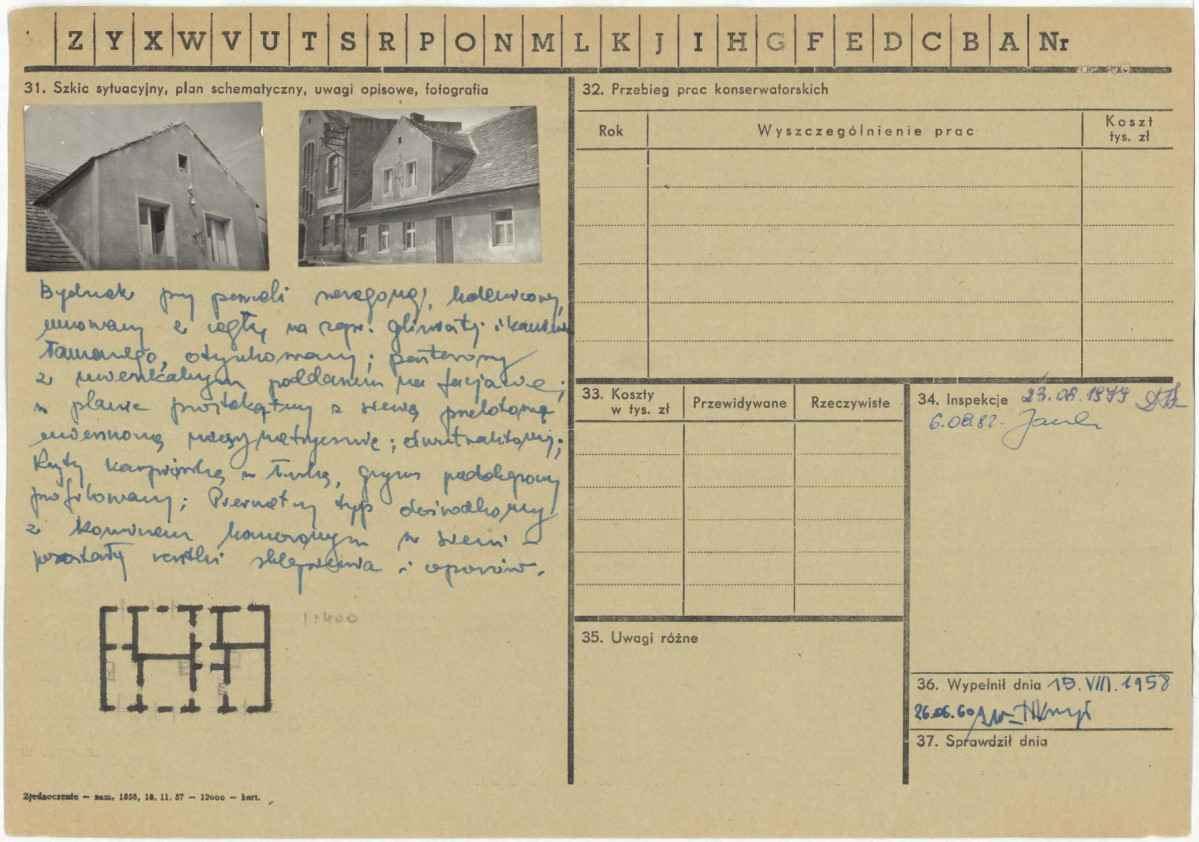 Z Y X W V U T S R P O N M L K J I H G F E D C B A Nr
31. Szkic sytuacyjny, plan schematyczny, uwagi opisowe, fotografia
Budynek przy pierzei szeregowej, kalenicowy,
murowany z cegły na zapr. gliniastej i kamienia
łamanego, otynkowany; parterowy
z mieszkalnym poddaszem na facjatce;
w planie prostokątny z sienią przelotową
umieszczoną niesymetrycznie; dwutraktowy;
Kryty karpiówką w łuskę, gzyms podokapowy
profilowany; Pierwotny typ ośrodkowy
z kominem komorowym w sieni –
pozostały resztki sklepienia i oporów.
1:400
Zjednoczenie — zam. 1858, 18. 11. 57 — 12000 — kart.
32. Przebieg prac konserwatorskich
Rok
Wyszczególnienie prac
Koszt
tys. zł
33. Koszty
w tys. zł
Przewidywane
Rzeczywiste
34. Inspekcje 23.08.1977
6.08.82.
35. Uwagi różne
36. Wypełnił dnia 19.VIII.1958
26.06.60
37. Sprawdził dnia